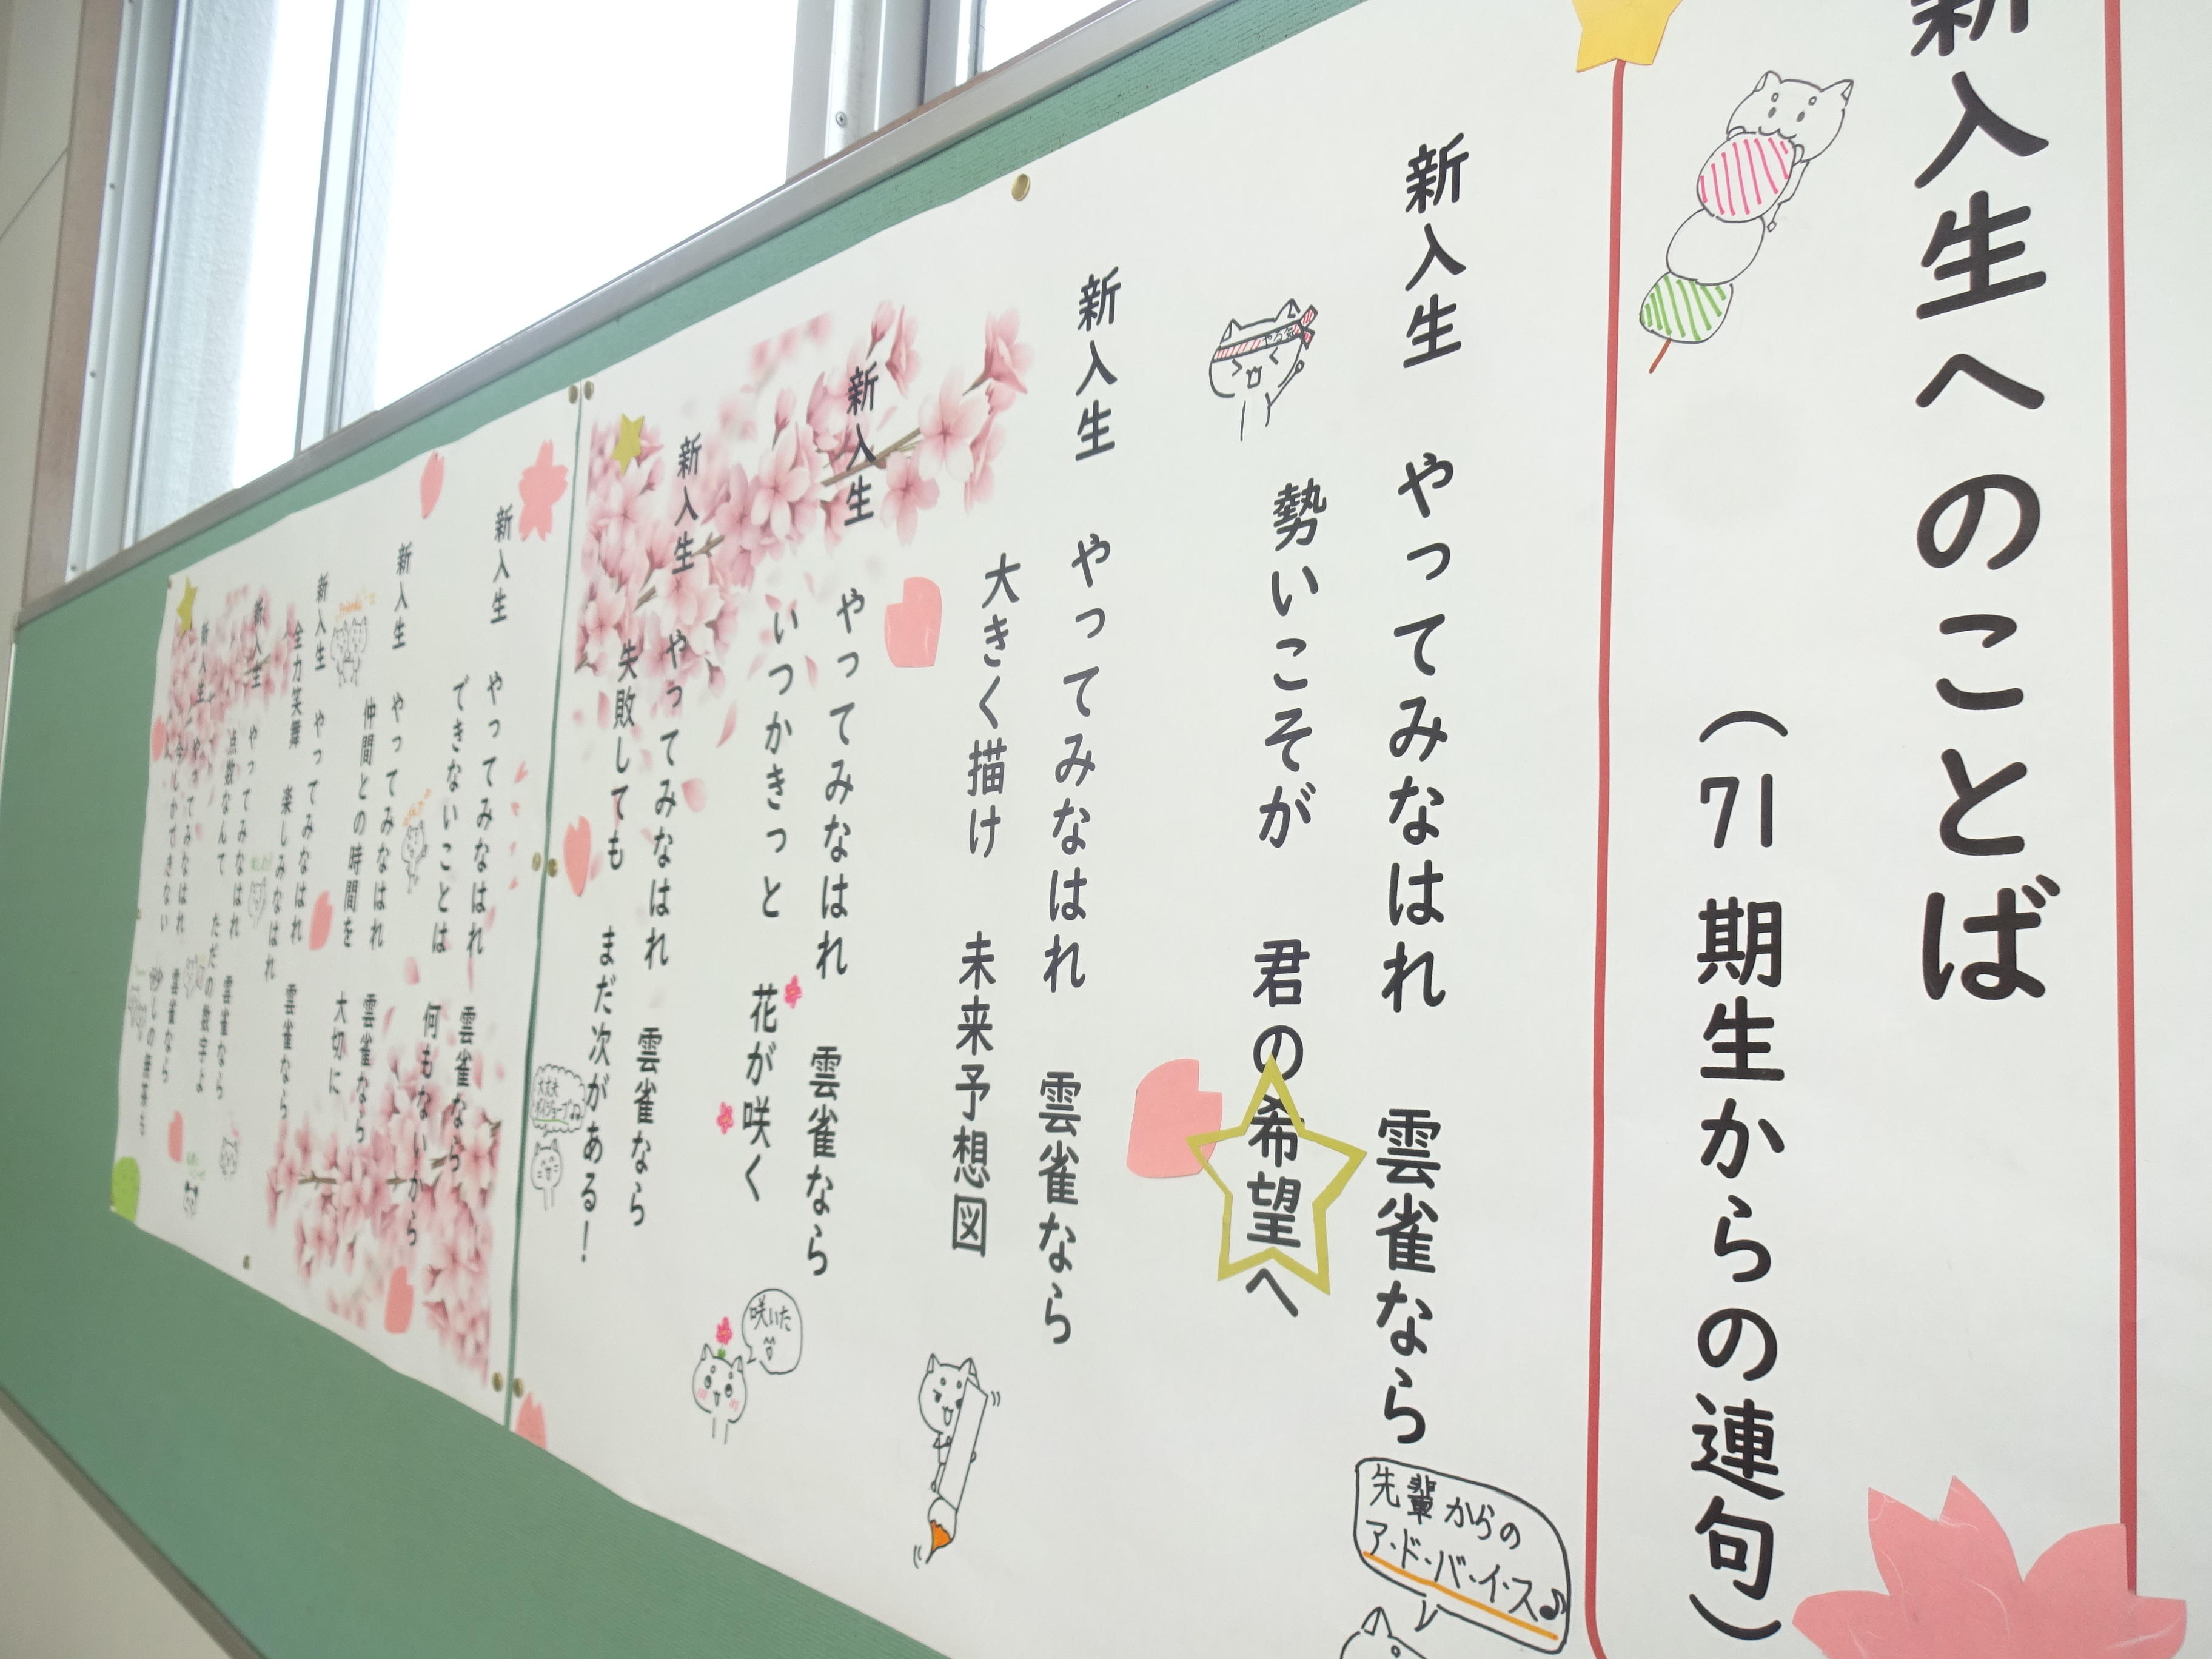 新入生へのことば
（71期生からの連句）
新入生 やってみなはれ 雲雀なら
勢いこそが 君の希望へ
先輩からの
ア・ド・バ・イ・ス♪
新入生 やってみなはれ 雲雀なら
大きく描け 未来予想図
新入生 やってみなはれ 雲雀なら
いつかきっと 花が咲く
咲いた
新入生 やってみなはれ 雲雀なら
失敗しても まだ次がある！
大丈夫
新入生 やってみなはれ 雲雀なら
できないことは 何もないから
新入生 やってみなはれ 雲雀なら
仲間との時間を 大切に
新入生 やってみなはれ 雲雀なら
全力笑舞 楽しみなはれ
新入生 やってみなはれ 雲雀なら
点数なんて ただの数字よ
新入生 やってみなはれ 雲雀なら
今しかできない